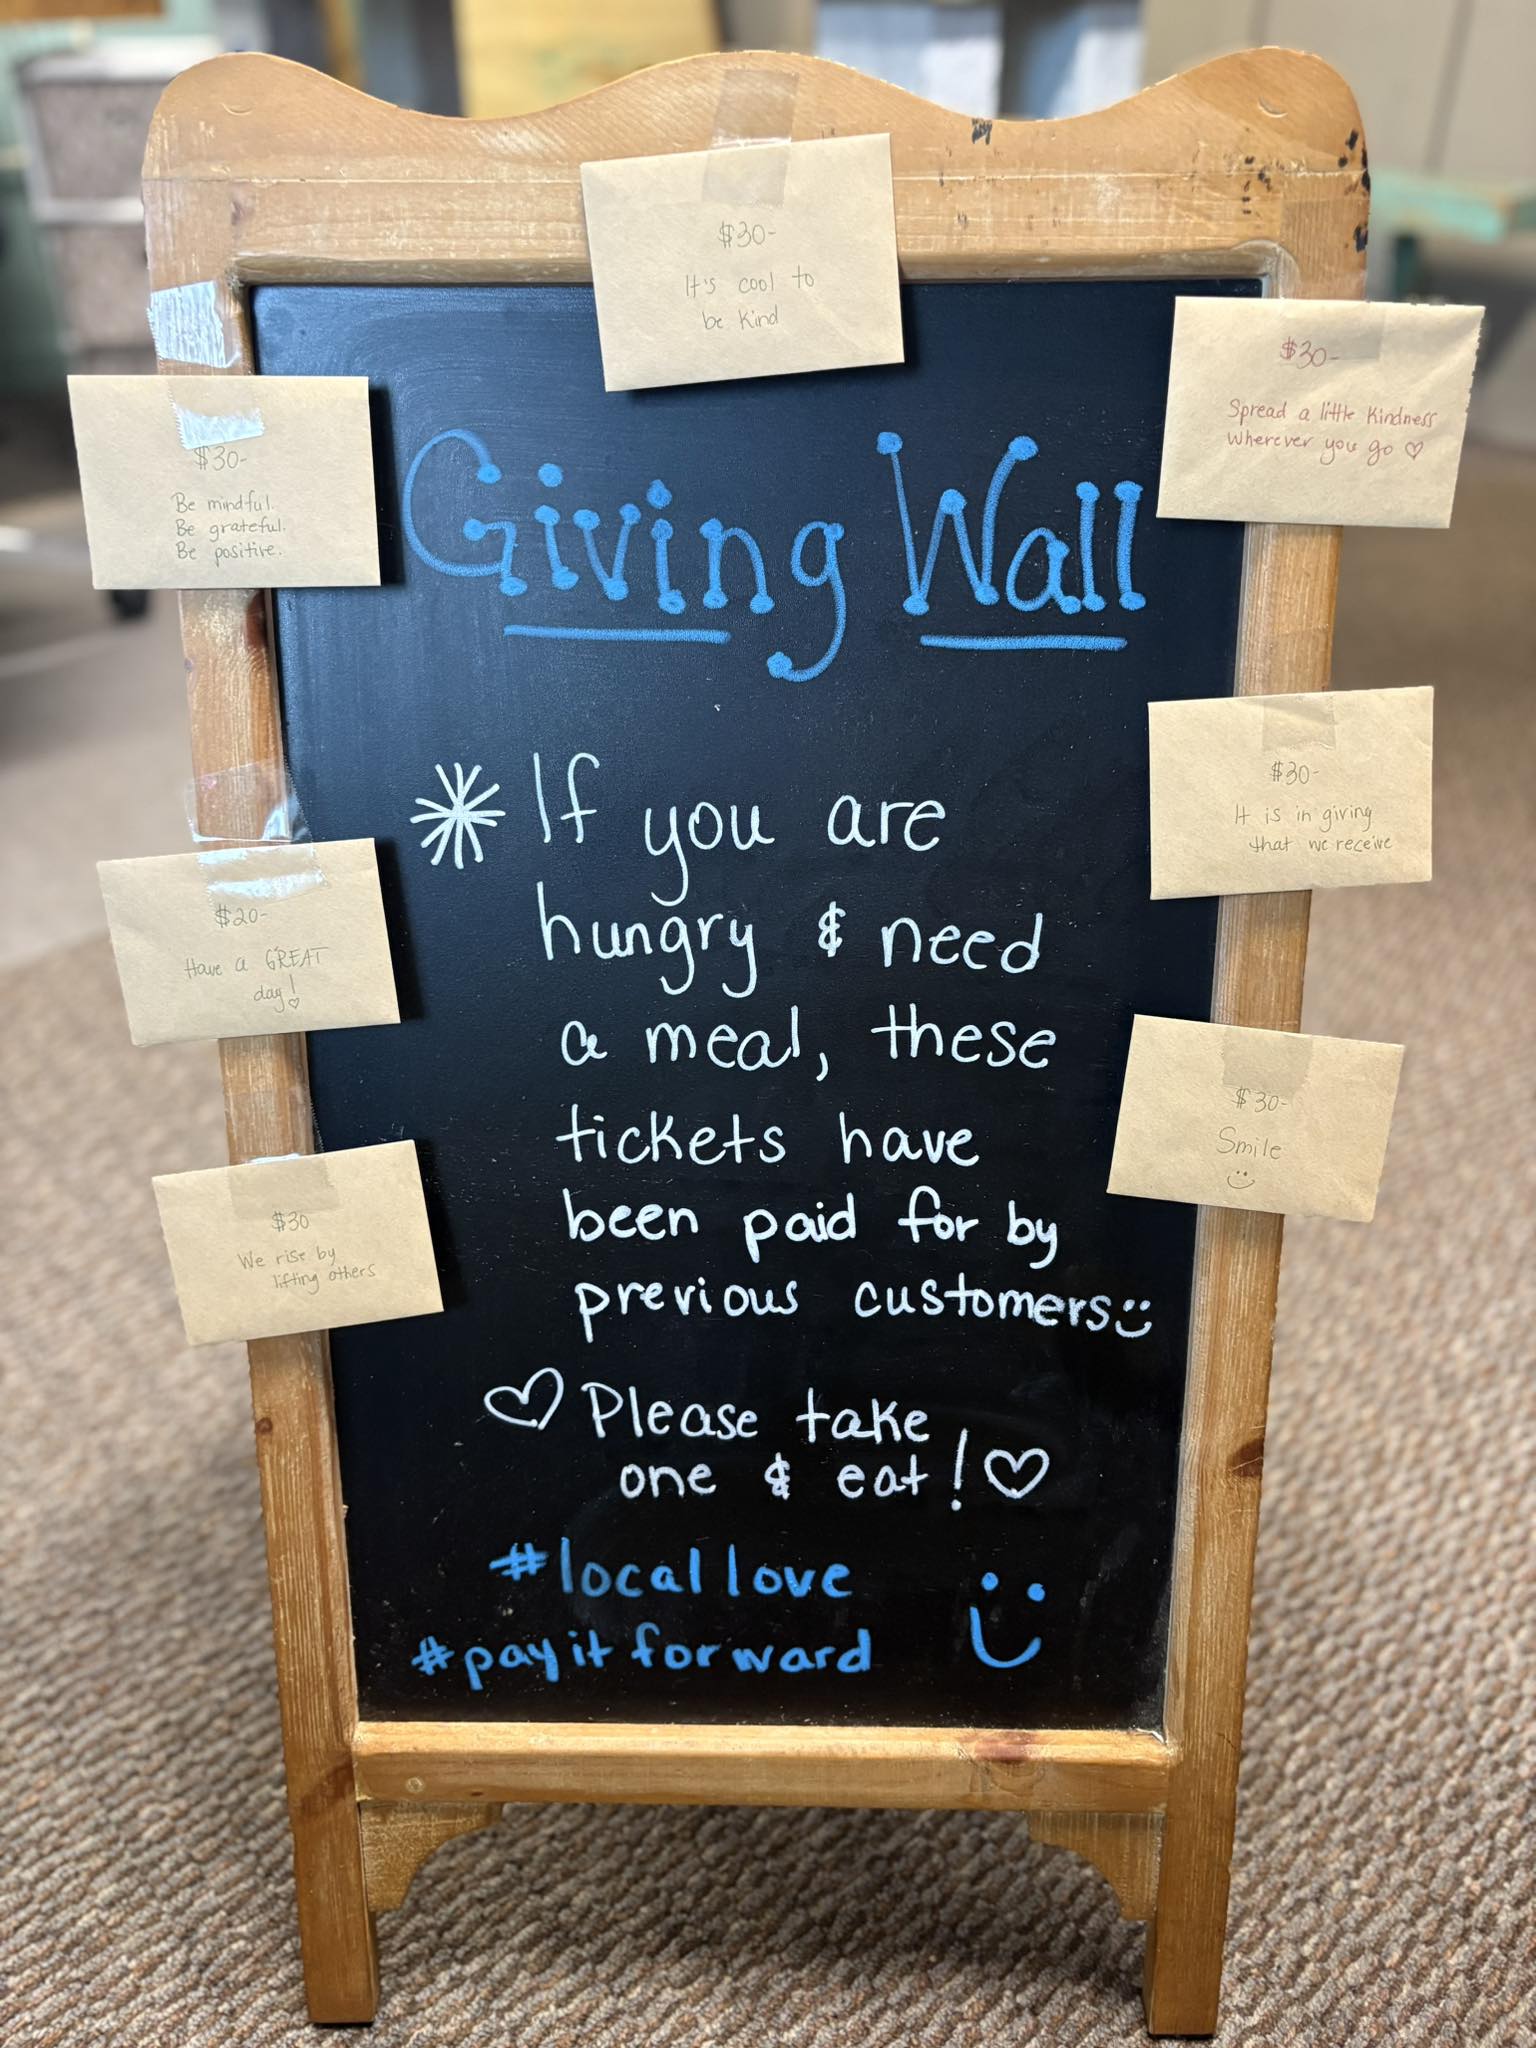 $30-
It's cool to
be kind
$30-
Be mindful.
Be grateful.
Be positive.
$30-
Spread a little kindness
wherever you go ♡
Giving Wall
If you are
hungry & need
a meal, these
tickets have
been paid for by
previous customers
♡ Please take
one & eat! ♡
#locallove
#payitforward
$20-
Have a GREAT
day! ♡
$30
We rise by
lifting others
$30-
It is in giving
that we receive
$30-
Smile